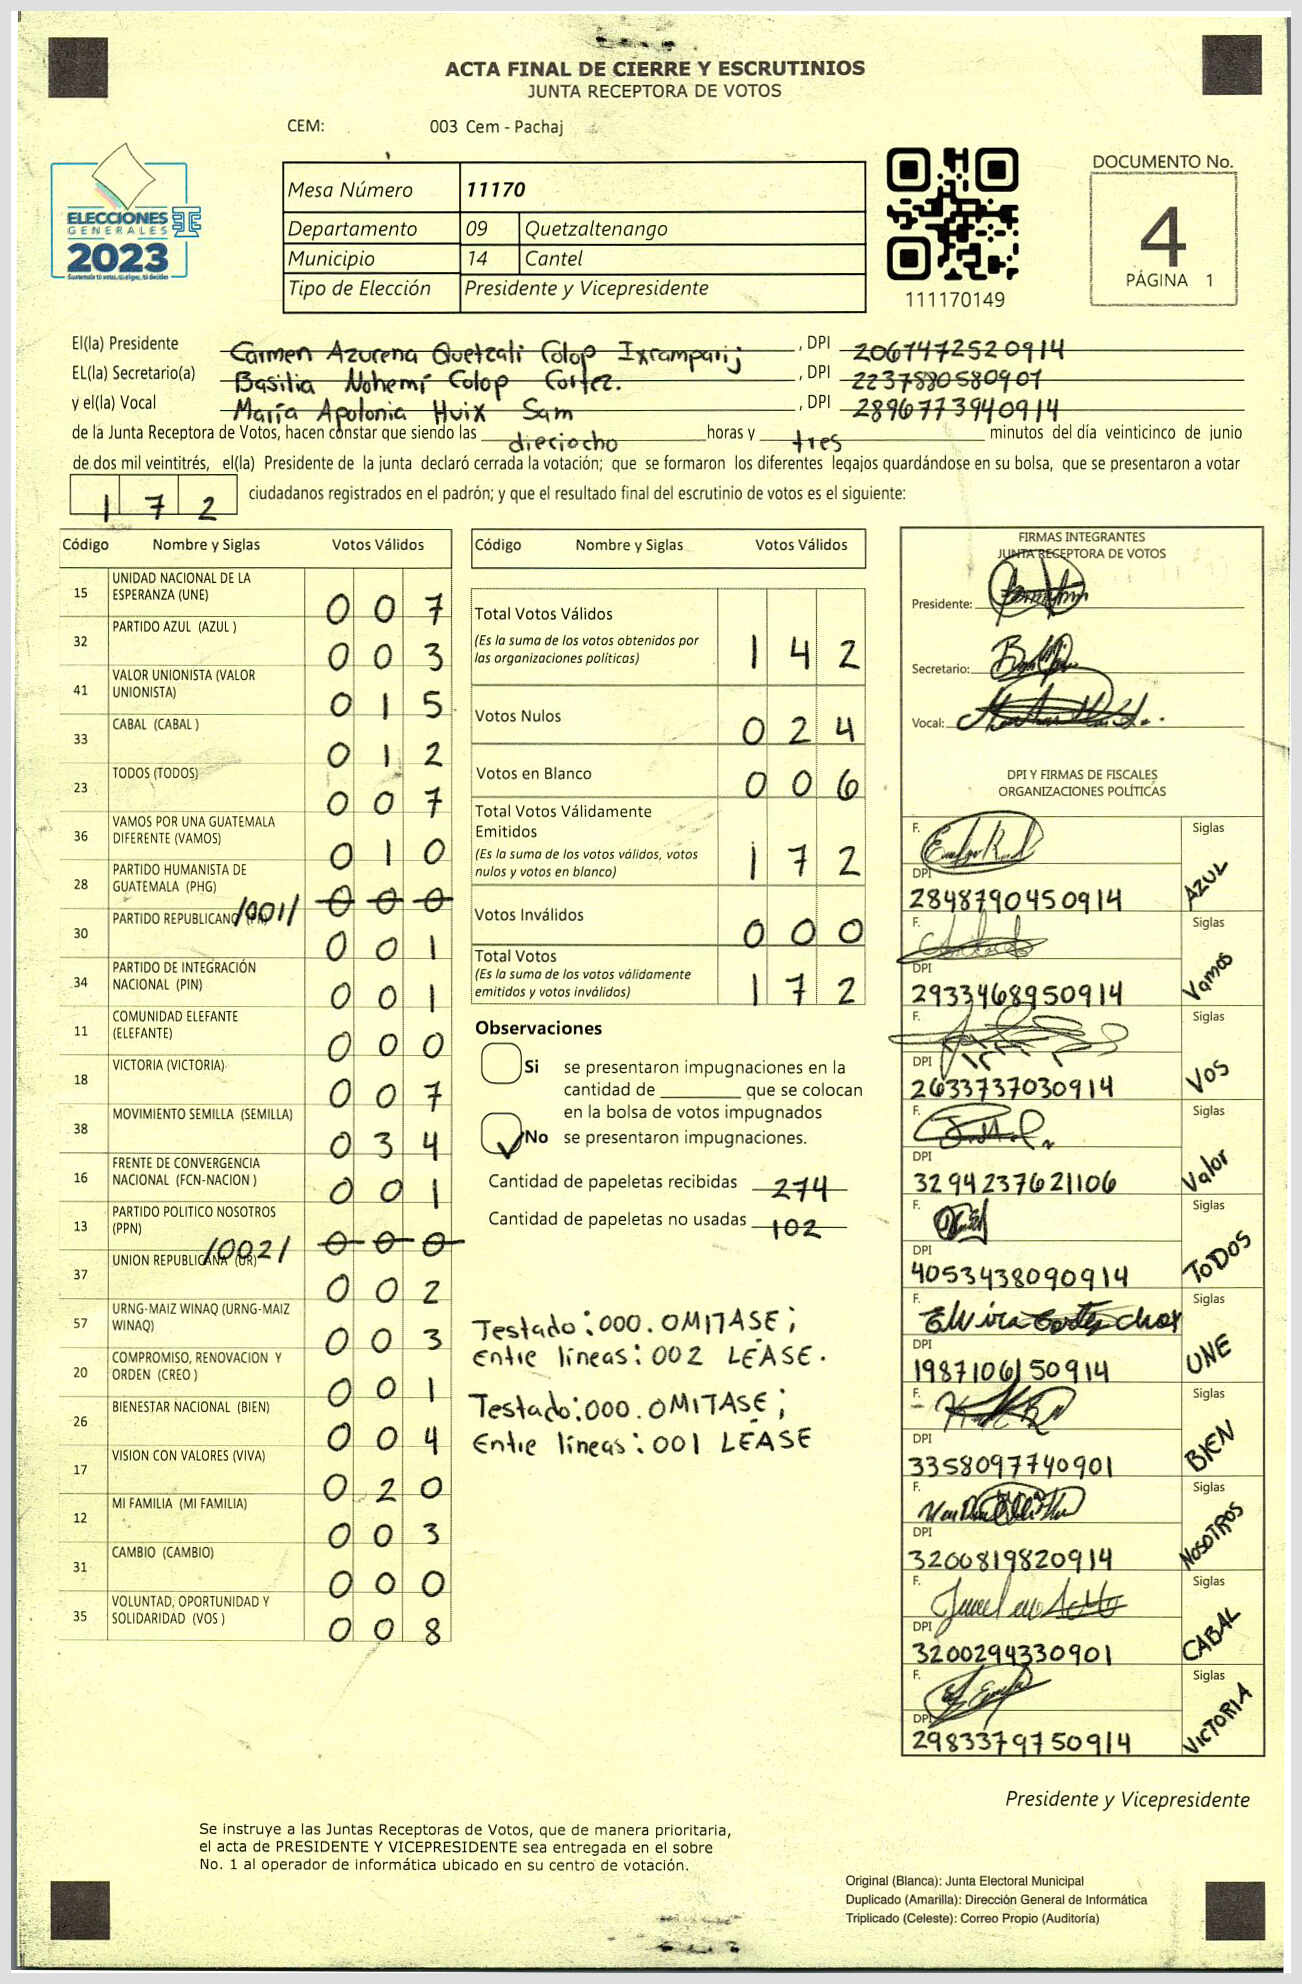 ACTA FINAL DE CIERRE Y ESCRUTINIOS
JUNTA RECEPTORA DE VOTOS
CEM: 003 Cem - Pachaj
ELECCIONES
GENERALES
2023
Mesa Número 11170
Departamento 09 Quetzaltenango
Municipio 14 Cantel
Tipo de Elección Presidente y Vicepresidente
111170149
DOCUMENTO No.
4
PÁGINA 1
El(la) Presidente Carmen Azurena Quetzali Colop Ixcamparij, DPI 2067472520914
EL(la) Secretario(a) Basilia Nohemí Colop Cortez., DPI 2237880580907
y el(la) Vocal María Apolonia Huix Sam, DPI 2896773940914
de la Junta Receptora de Votos, hacen constar que siendo las dieciocho horas y tres minutos del día veinticinco de junio
de dos mil veintitrés, el(la) Presidente de la junta declaró cerrada la votación; que se formaron los diferentes legajos guardándose en su bolsa, que se presentaron a votar
172 ciudadanos registrados en el padrón; y que el resultado final del escrutinio de votos es el siguiente:
Código Nombre y Siglas Votos Válidos
15 UNIDAD NACIONAL DE LA ESPERANZA (UNE) 007
32 PARTIDO AZUL (AZUL ) 003
41 VALOR UNIONISTA (VALOR UNIONISTA) 015
33 CABAL (CABAL ) 012
23 TODOS (TODOS) 007
36 VAMOS POR UNA GUATEMALA DIFERENTE (VAMOS) 010
28 PARTIDO HUMANISTA DE GUATEMALA (PHG) 000
/001/
30 PARTIDO REPUBLICANO (PR) 001
34 PARTIDO DE INTEGRACIÓN NACIONAL (PIN) 001
11 COMUNIDAD ELEFANTE (ELEFANTE) 000
18 VICTORIA (VICTORIA) 007
38 MOVIMIENTO SEMILLA (SEMILLA) 034
16 FRENTE DE CONVERGENCIA NACIONAL (FCN-NACION ) 001
13 PARTIDO POLITICO NOSOTROS (PPN) 000
/002/
37 UNION REPUBLICANA (UR) 002
57 URNG-MAIZ WINAQ (URNG-MAIZ WINAQ) 003
20 COMPROMISO, RENOVACION Y ORDEN (CREO ) 001
26 BIENESTAR NACIONAL (BIEN) 004
17 VISION CON VALORES (VIVA) 020
12 MI FAMILIA (MI FAMILIA) 003
31 CAMBIO (CAMBIO) 000
35 VOLUNTAD, OPORTUNIDAD Y SOLIDARIDAD (VOS ) 008
Código Nombre y Siglas Votos Válidos
Total Votos Válidos 142
(Es la suma de los votos obtenidos por
las organizaciones políticas)
Votos Nulos 024
Votos en Blanco 006
Total Votos Válidamente
Emitidos 172
(Es la suma de los votos válidos, votos
nulos y votos en blanco)
Votos Inválidos 000
Total Votos 172
(Es la suma de los votos válidamente
emitidos y votos inválidos)
Observaciones
Si se presentaron impugnaciones en la
cantidad de ________ que se colocan
en la bolsa de votos impugnados
No se presentaron impugnaciones.
Cantidad de papeletas recibidas 274
Cantidad de papeletas no usadas 102
Testado: 000. OMITASE;
Entre líneas: 002 LEASE.
Testado: 000. OMITASE;
Entre líneas: 001 LÉASE
FIRMAS INTEGRANTES
JUNTA RECEPTORA DE VOTOS
Presidente:
Secretario:
Vocal:
DPI Y FIRMAS DE FISCALES
ORGANIZACIONES POLÍTICAS
F. Siglas
DPI 2848790450914 AZUL
F. Siglas
DPI 2933468950914 Vamos
F. Siglas
DPI 2633737030914 VOS
F. Siglas
DPI 3294237621106 Valor
F. Siglas
DPI 4053438090914 TODOS
F. Elvira Siglas
DPI 1987106150914 UNE
F. Siglas
DPI 3358097740901 BIEN
F. Siglas
DPI 3200819820914 NOSOTROS
F. Siglas
DPI 3200294330901 CABAL
F. Siglas
DPI 2983379750914 VICTORIA
Presidente y Vicepresidente
Se instruye a las Juntas Receptoras de Votos, que de manera prioritaria,
el acta de PRESIDENTE Y VICEPRESIDENTE sea entregada en el sobre
No. 1 al operador de informática ubicado en su centro de votación.
Original (Blanca): Junta Electoral Municipal
Duplicado (Amarilla): Dirección General de Informática
Triplicado (Celeste): Correo Propio (Auditoría)